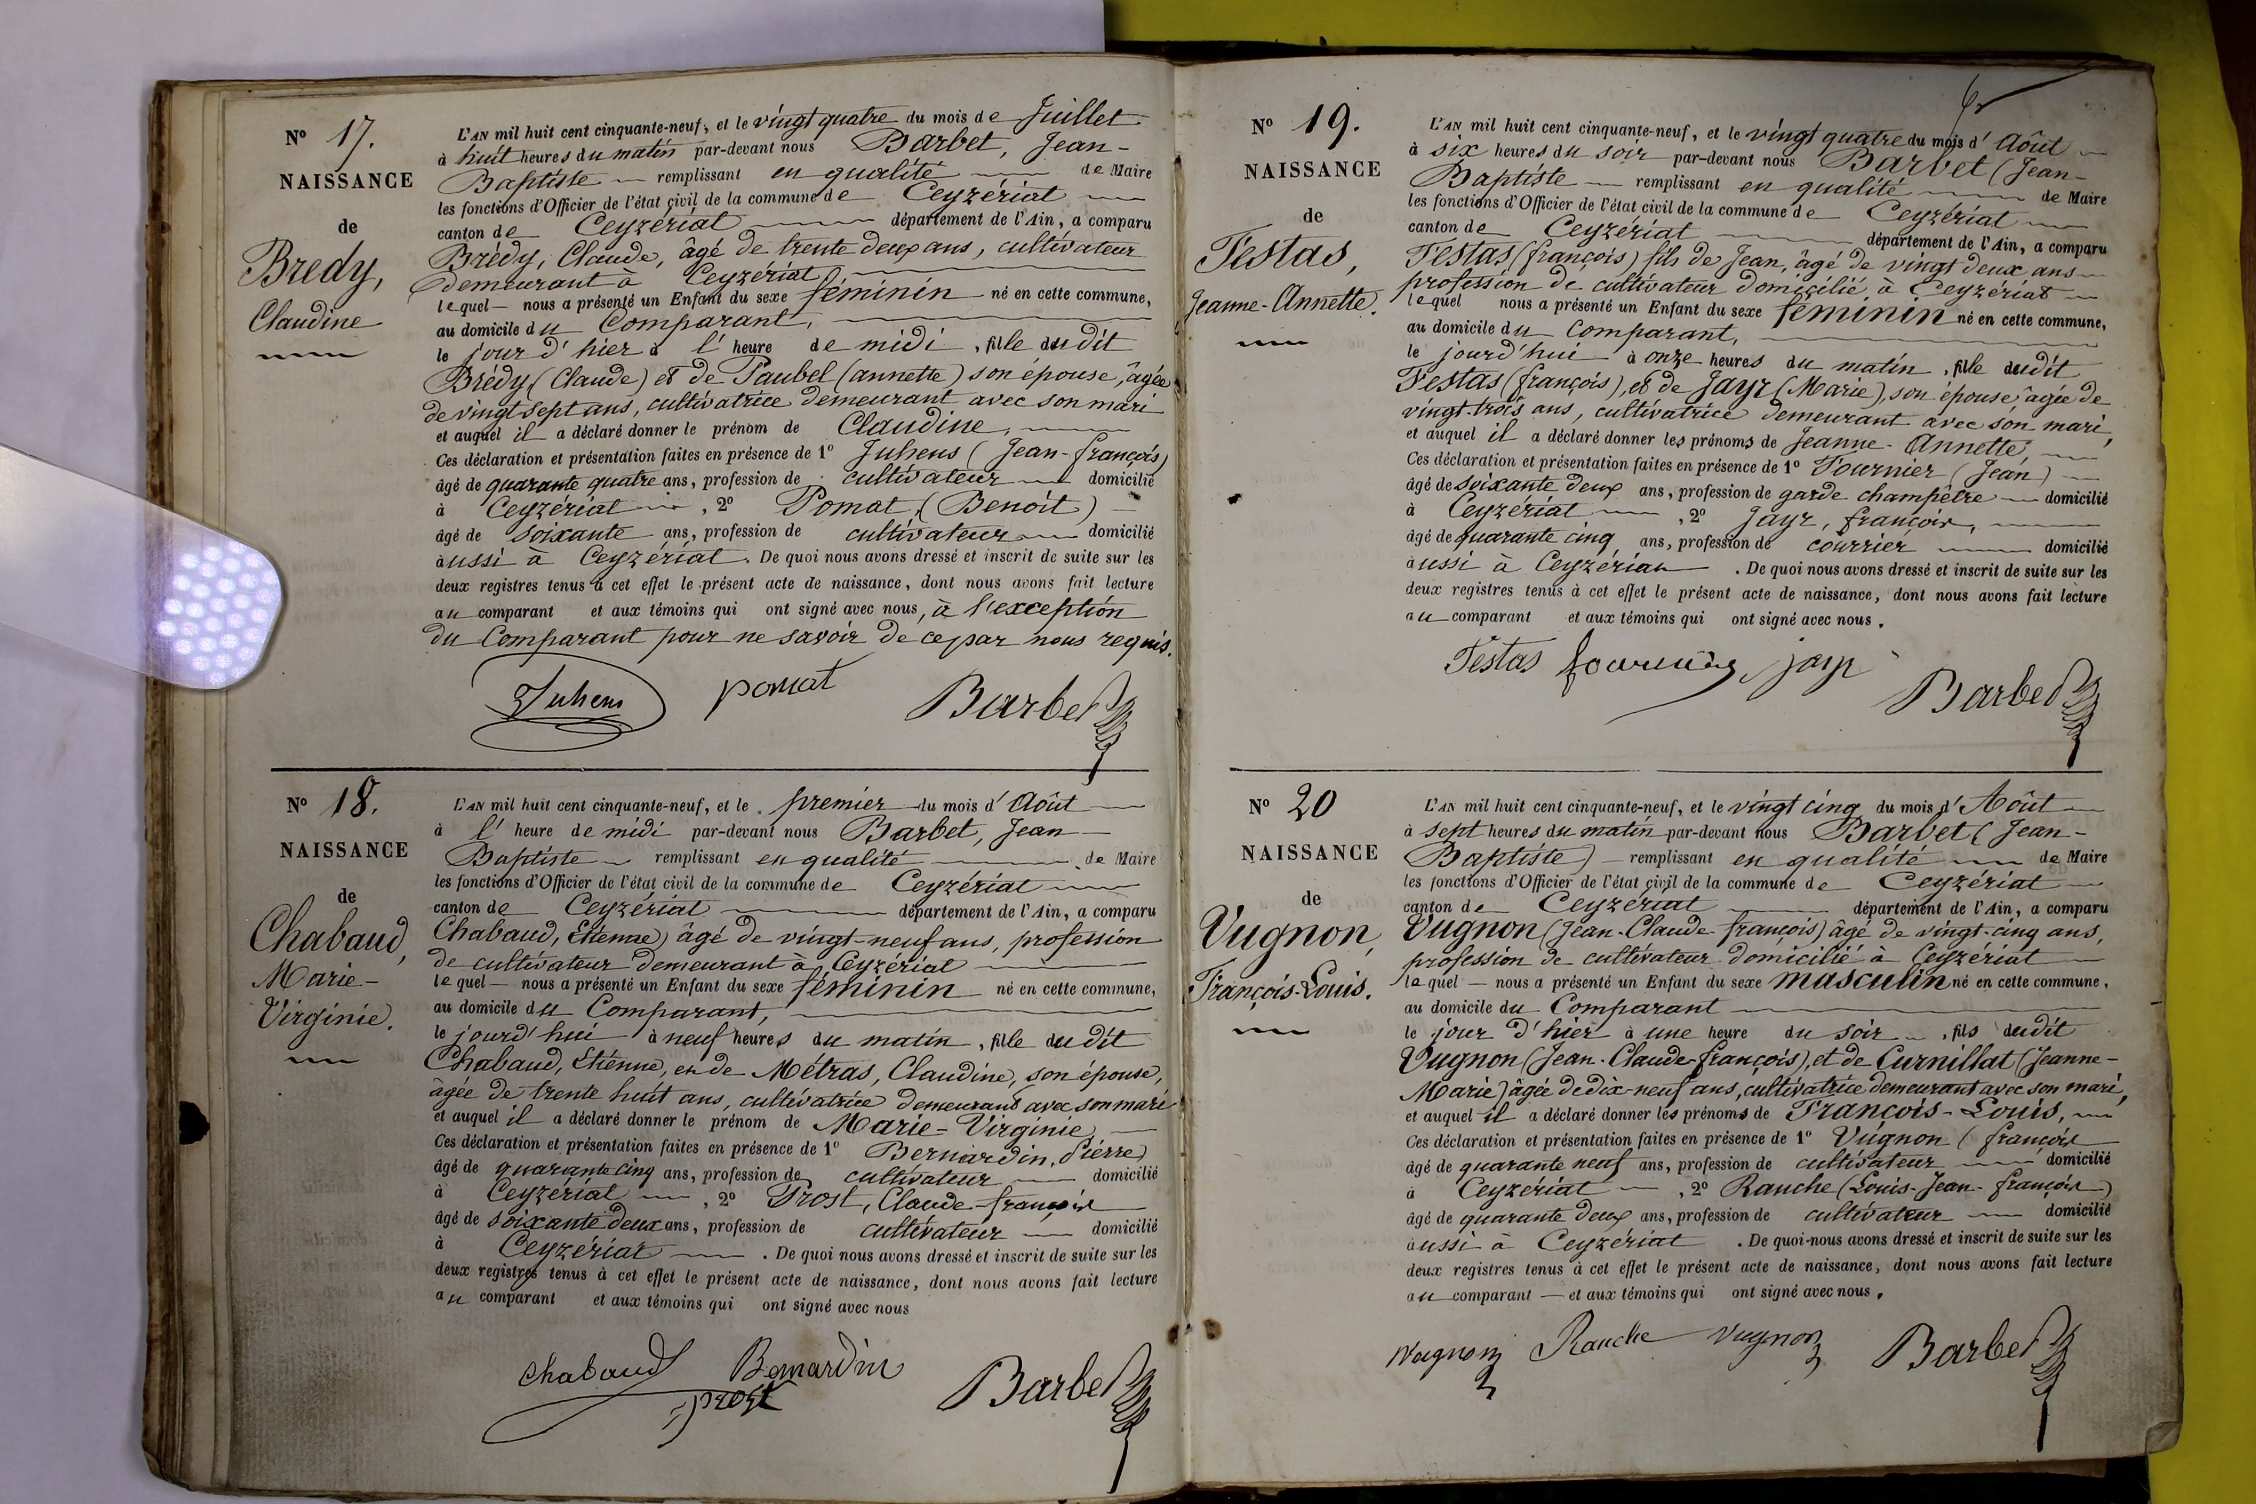 N° 17.
NAISSANCE
de
Bredy,
Claudine
L'AN mil huit cent cinquante-neuf, et le vingt quatre du mois de Juillet
à huit heures du matin par-devant nous Barbet, Jean-
Baptiste remplissant en qualité de Maire
les fonctions d'Officier de l'état civil de la commune de Ceyzériat
canton de Ceyzériat département de l'Ain, a comparu
Brédy, Claude, âgé de trente deux ans, cultivateur
demeurant à Ceyzériat,
lequel nous a présenté un Enfant du sexe féminin né en cette commune,
au domicile du Comparant,
le jour d'hier à l'heure de midi, fille du dit
Brédy (Claude) et de Paubel (annette) son épouse, âgée
de vingt sept ans, cultivatrice demeurant avec son mari
et auquel il a déclaré donner le prénom de Claudine,
Ces déclaration et présentation faites en présence de 1° Juhens (Jean-françois)
âgé de quarante quatre ans, profession de cultivateur domicilié
à Ceyzériat, 2° Pomat, (Benoit)
âgé de soixante ans, profession de cultivateur domicilié
aussi à Ceyzériat. De quoi nous avons dressé et inscrit de suite sur les
deux registres tenus à cet effet le présent acte de naissance, dont nous avons fait lecture
au comparant et aux témoins qui ont signé avec nous, à l'exception
du Comparant pour ne savoir de ce par nous requis.
Juhens pomat Barbet
N° 18.
NAISSANCE
de
Chabaud,
Marie-
Virginie.
L'AN mil huit cent cinquante-neuf, et le premier du mois d'Août
à l'heure de midi par-devant nous Barbet, Jean
Baptiste remplissant en qualité de Maire
les fonctions d'Officier de l'état civil de la commune de Ceyzériat
canton de Ceyzériat département de l'Ain, a comparu
Chabaud, Etienne) âgé de vingt-neuf ans, profession
de cultivateur demeurant à Ceyzériat
lequel nous a présenté un Enfant du sexe féminin né en cette commune,
au domicile du Comparant,
le jourd'hui à neuf heures du matin, fille du dit
Chabaud, Etienne, et de Métras, Claudine, son épouse,
âgée de trente huit ans, cultivatrice demeurant avec son mari
et auquel il a déclaré donner le prénom de Marie-Virginie
Ces déclaration et présentation faites en présence de 1° Bernardin, Pierre)
âgé de quarante cinq ans, profession de cultivateur domicilié
à Ceyzériat, 2° Prost, Claude-françois
âgé de soixante deux ans, profession de cultivateur domicilié
à Ceyzériat. De quoi nous avons dressé et inscrit de suite sur les
deux registres tenus à cet effet le présent acte de naissance, dont nous avons fait lecture
au comparant et aux témoins qui ont signé avec nous
Chabaud Bernardin Barbet
prost
N° 19.
NAISSANCE
de
Testas,
Jeanne-Annette.
L'AN mil huit cent cinquante-neuf, et le vingt quatre du mois d'Août
à six heures du soir par-devant nous Barbet (Jean-
Baptiste remplissant en qualité de Maire
les fonctions d'Officier de l'état civil de la commune de Ceyzériat
canton de Ceyzériat département de l'Ain, a comparu
Testas (françois) fils de Jean, âgé de vingt deux ans
profession de cultivateur domicilié à Ceyzériat
lequel nous a présenté un Enfant du sexe féminin né en cette commune,
au domicile du Comparant,
le jourd'hui à onze heures du matin, fille du dit
Testas (françois), et de Jayr (Marie), son épouse âgée de
vingt-trois ans, cultivatrice demeurant avec son mari,
et auquel il a déclaré donner les prénoms de Jeanne-Annette,
Ces déclaration et présentation faites en présence de 1° Fournier (Jean)
âgé de soixante deux ans, profession de garde champêtre domicilié
à Ceyzériat, 2° Jayr, françois,
âgé de quarante cinq ans, profession de courrier domicilié
aussi à Ceyzériat. De quoi nous avons dressé et inscrit de suite sur les
deux registres tenus à cet effet le présent acte de naissance, dont nous avons fait lecture
au comparant et aux témoins qui ont signé avec nous.
Testas fournier jayr Barbet
N° 20
NAISSANCE
de
Vugnon,
François-Louis.
L'AN mil huit cent cinquante-neuf, et le vingt cinq du mois d'Août
à sept heures du matin par-devant nous Barbet (Jean-
Baptiste) remplissant en qualité de Maire
les fonctions d'Officier de l'état civil de la commune de Ceyzériat
canton de Ceyzériat département de l'Ain, a comparu
Vugnon (Jean-Claude-françois) âgé de vingt-cinq ans,
profession de cultivateur domicilié à Ceyzériat
lequel nous a présenté un Enfant du sexe masculin né en cette commune,
au domicile du Comparant
le jour d'hier à une heure du soir, fils du dit
Vugnon (Jean-Claude-françois), et de Curnillat (Jeanne-
Marie) âgée de dix-neuf ans, cultivatrice demeurant avec son mari,
et auquel il a déclaré donner les prénoms de François-Louis,
Ces déclaration et présentation faites en présence de 1° Vugnon (françois
âgé de quarante neuf ans, profession de cultivateur domicilié
à Ceyzériat, 2° Ranche (Louis-Jean-françois)
âgé de quarante deux ans, profession de cultivateur domicilié
aussi à Ceyzériat. De quoi nous avons dressé et inscrit de suite sur les
deux registres tenus à cet effet le présent acte de naissance, dont nous avons fait lecture
au comparant et aux témoins qui ont signé avec nous.
Vugnon Ranche Vugnon Barbet